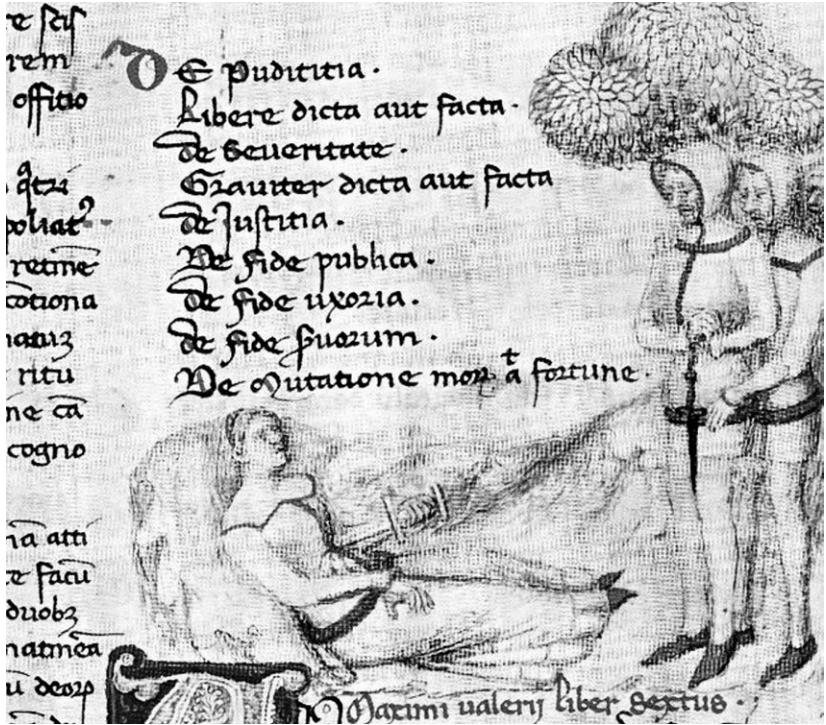 re scis
rem
offitio
poliat
retinē
cōtiona
ritu
ne cā
cogno
nā atti
te facū
duobꝫ
DE pudititia .
Libere dicta aut facta .
de Seueritate .
Grauiter dicta aut facta
de Justitia .
De fide publica .
de fide uxoria .
de fide s̄uorum .
De Mutatione mor. aᵗ fortune .
Maximi ualerij liber Sextus .